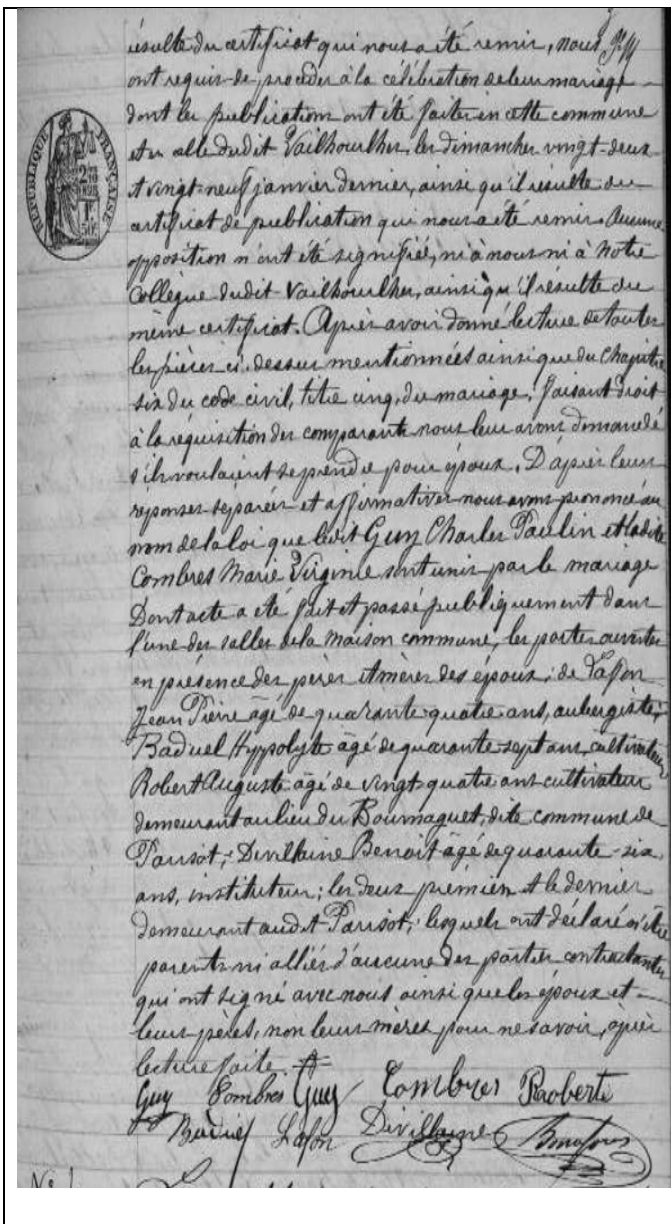 résulte du certificat qui nous a été remis, nous
ont requis de procéder à la célébration de leur mariage
dont les publications ont été faites en cette commune
et en celle dudit Vailhourlhes, les dimanches vingt-deux
et vingt-neuf janvier dernier, ainsi qu'il résulte du
certificat de publication qui nous a été remis. Aucune
opposition n'ont été signifiée, ni à nous ni à notre
Collègue dudit Vailhourlhes, ainsi qu'il résulte du
même certificat. Après avoir donné lecture de toutes
les pièces ci-dessus mentionnées ainsi que du Chapitre
six du code civil, titre cinq, du mariage, faisant droit
à la réquisition des comparants nous leur avons demandé
s'ils voulaient se prendre pour époux. D'après leurs
réponses séparées et affirmatives nous avons prononcé au
nom de la loi que ledit Guy Charles Paulin et ladite
Combres Marie Virginie sont unis par le mariage
Dont acte a été fait et passé publiquement dans
l'une des salles de la maison commune, les portes ouvertes
en présence des pères et mères des époux; de Lafon
Jean Pierre âgé de quarante quatre ans, aubergiste;
Baduel Hyppolyte âgé de quarante-sept ans, cultivateur
Robert Auguste âgé de vingt quatre ans cultivateur
demeurant au lieu du Bournaguet, dite commune de
Parisot; Devillaine Benoit âgé de quarante-six
ans, instituteur; les deux premiers et le dernier
demeurant audit Parisot; lesquels ont déclaré n'être
parents ni alliés d'aucune des parties contractantes
qui ont signé avec nous ainsi que les époux et
leurs pères, non leurs mères pour ne savoir, après
lecture faite.
Guy Combres Guy Combres Roberte
Baduel Lafon Devillaine
RÉPUBLIQUE FRANÇAISE
1F
50c